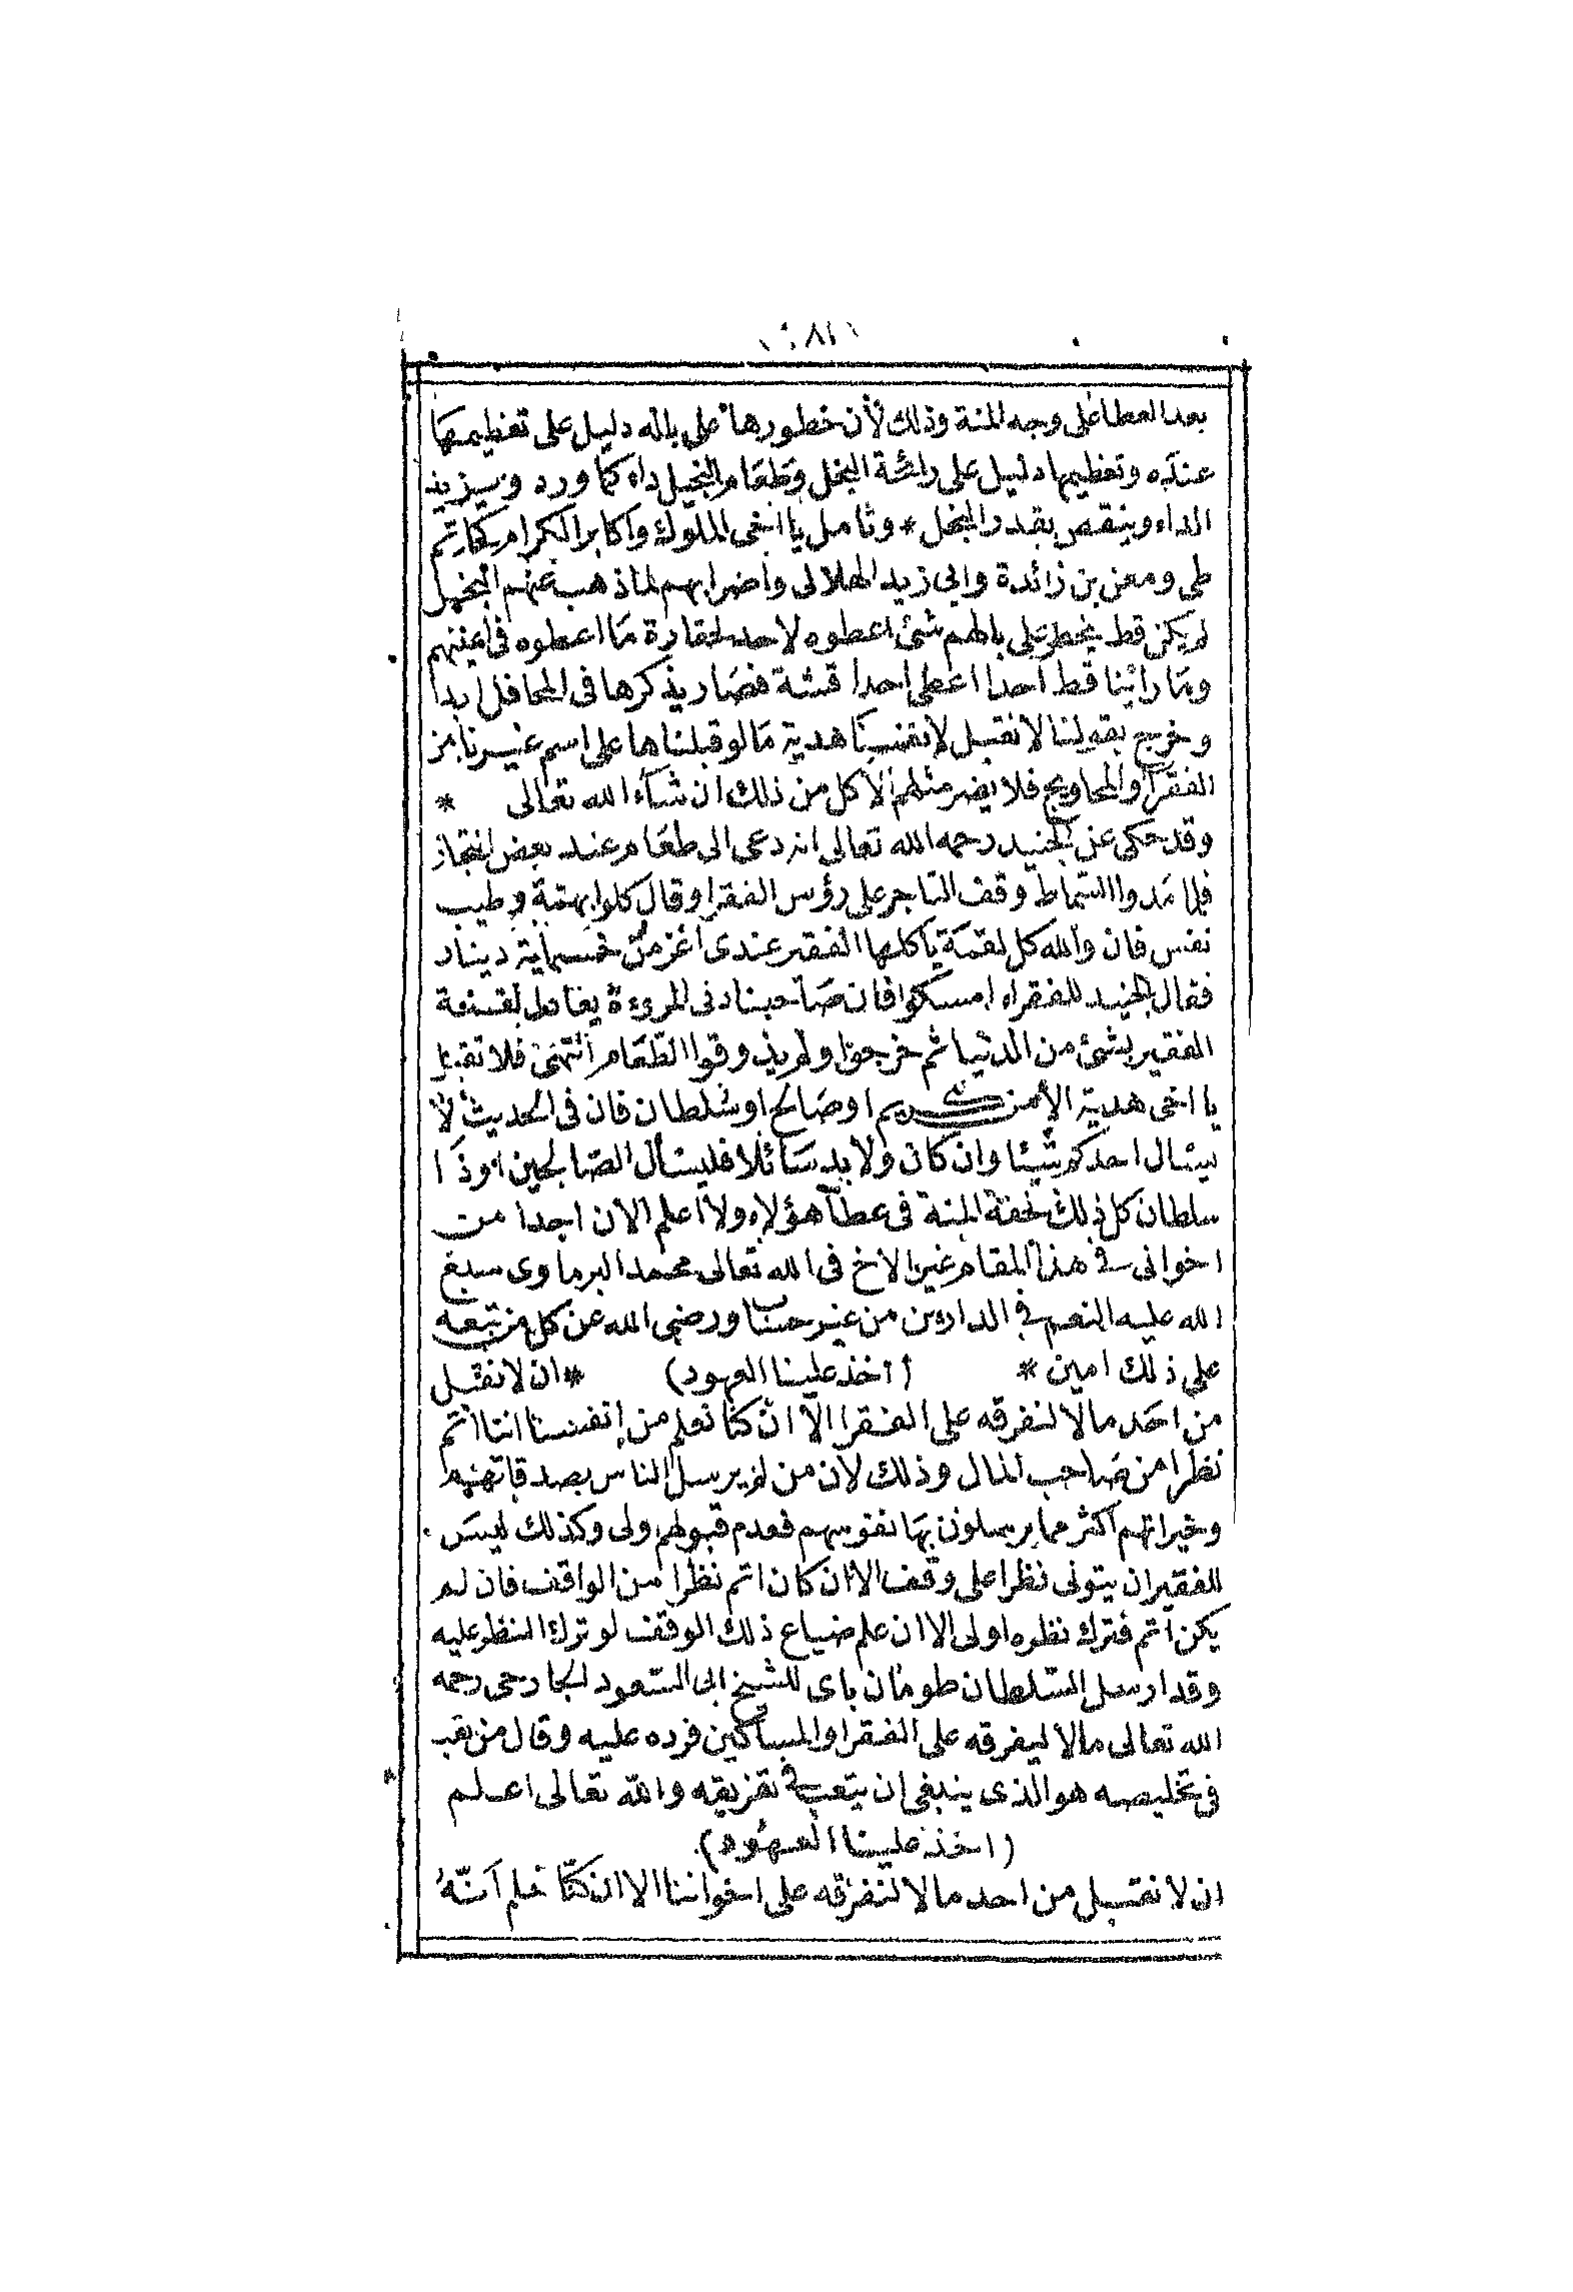 بعد العطا على وجه المنة وذلك لأن خطورها على باله دليل على تعظيمها
عنده وتعظيمها دليل على رائحة البخل وطعام البخيل داء كما ورد وسيزيد
الداء وينقص بقدر البخل * وتامل يا اخى الملوك واكابر الكرام كحاتم
طى ومعن بن زائدة وابى زيد الهلالى واضرابهم لما ذهب عنهم البخل
لم يكن قط يخطر على بالهم شئ اعطوه لاحد لحقارة ما اعطوه فى اعينهم
وما راينا قط احدا اعطى احدا قشة فصار يذكرها فى المحافل ابدا
وخرج بقولنا لا نقبل لانفسنا هدية ما لو قبلناها على اسم غيرنا من
الفقرآ والمحاويج فلا يضر مثلهم الاكل من ذلك ان شآء الله تعالى *
وقد حكى عن الجنيد رحمه الله تعالى انه دعى الى طعام عند بعض التجار
فلما مدوا السماط وقف التاجر على رؤس الفقرا وقال كلوا بهمة وطيب
نفس فان والله كل لقمة ياكلها الفقير عندى اعز من خمسماية دينار
فقال الجنيد للفقراء امسكوا فان صاحبنا دنى المروءة يعادل لقمة
الفقير بشئ من الدنيا ثم خرجوا ولم يذوقوا الطعام انتهى فلا تقبل
يا اخى هدية الا من كريم او صالح او سلطان فان فى الحديث لا
يسئال احدكم شيئا وان كان ولا بد سائلا فليسئال الصالحين او ذا
سلطان كل ذلك لخفة المنة فى عطآ هؤلاء ولا اعلم الان احدا من
اخوانى فى هذا المقام غير الاخ فى الله تعالى محمد البرماوى سبغ
الله عليه النعم فى الدارين من غير حساب ورضى الله عن كل من تبعه
على ذلك امين * (اخذ علينا العهود) * ان لا نقبل
من احد مالا لنفرقه على الفقرا الا ان كنا نعلم من انفسنا اننا اتم
نظرا من صاحب المال وذلك لان من لم يرسل الناس بصدقاتهم
وخيراتهم اكثر مما يرسلون بها نفوسهم فعدم قبولهم ولى وكذلك ليس
للفقير ان يتولى نظرا على وقف الا ان كان اتم نظرا من الواقف فان لم
يكن اتم فترك نظره اولى الا ان علم ضياع ذلك الوقف لو ترك النظر عليه
وقد ارسل السلطان طومان باى للشيخ ابى السعود الجارحى رحمه
الله تعالى مالا ليفرقه على الفقرا والمساكين فرده عليه وقال من تعب
فى تخليصه هو الذى ينبغى ان يتعب فى تفريقه والله تعالى اعلم
(اخذ علينا العهود)
ان لا نقبل من احد مالا لنفرقه على اخواننا الا ان كنا نعلم انه